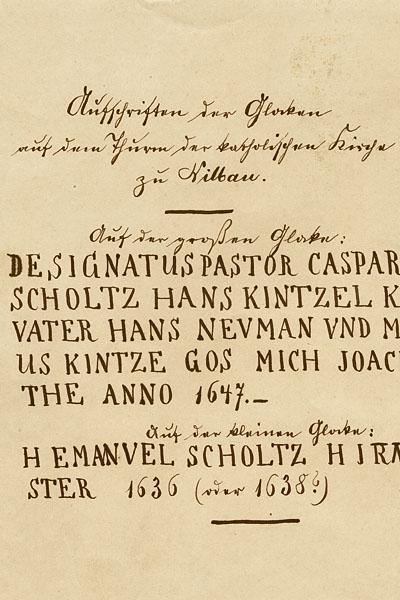 Aufschriften der Glocken
auf dem Thurm der katholischen Kirche
zu Nilbau.
Auf der großen Glocke:
DESIGNATUS PASTOR CASPAR
SCHOLTZ HANS KINTZEL K
VATER HANS NEVMAN VND M
US KINTZE GOS MICH JOAC
THE ANNO 1647.–
Auf der kleinen Glocke:
H EMANVEL SCHOLTZ H IRA
STER 1636 (oder 1638?)